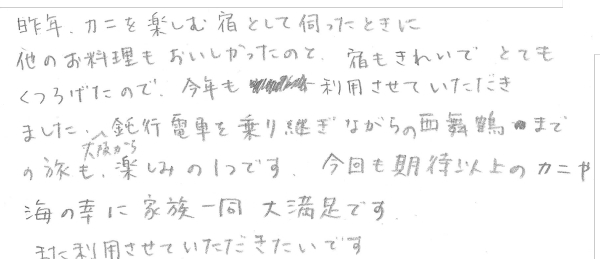 昨年、カニを楽しむ宿として伺ったときに
他のお料理もおいしかったのと、宿もきれいでとても
くつろげたので、今年も利用させていただき
ました。大阪から鈍行電車を乗り継ぎながらの西舞鶴まで
の旅も、楽しみの1つです。今回も期待以上のカニや
海の幸に家族一同大満足です。
また利用させていただきたいです